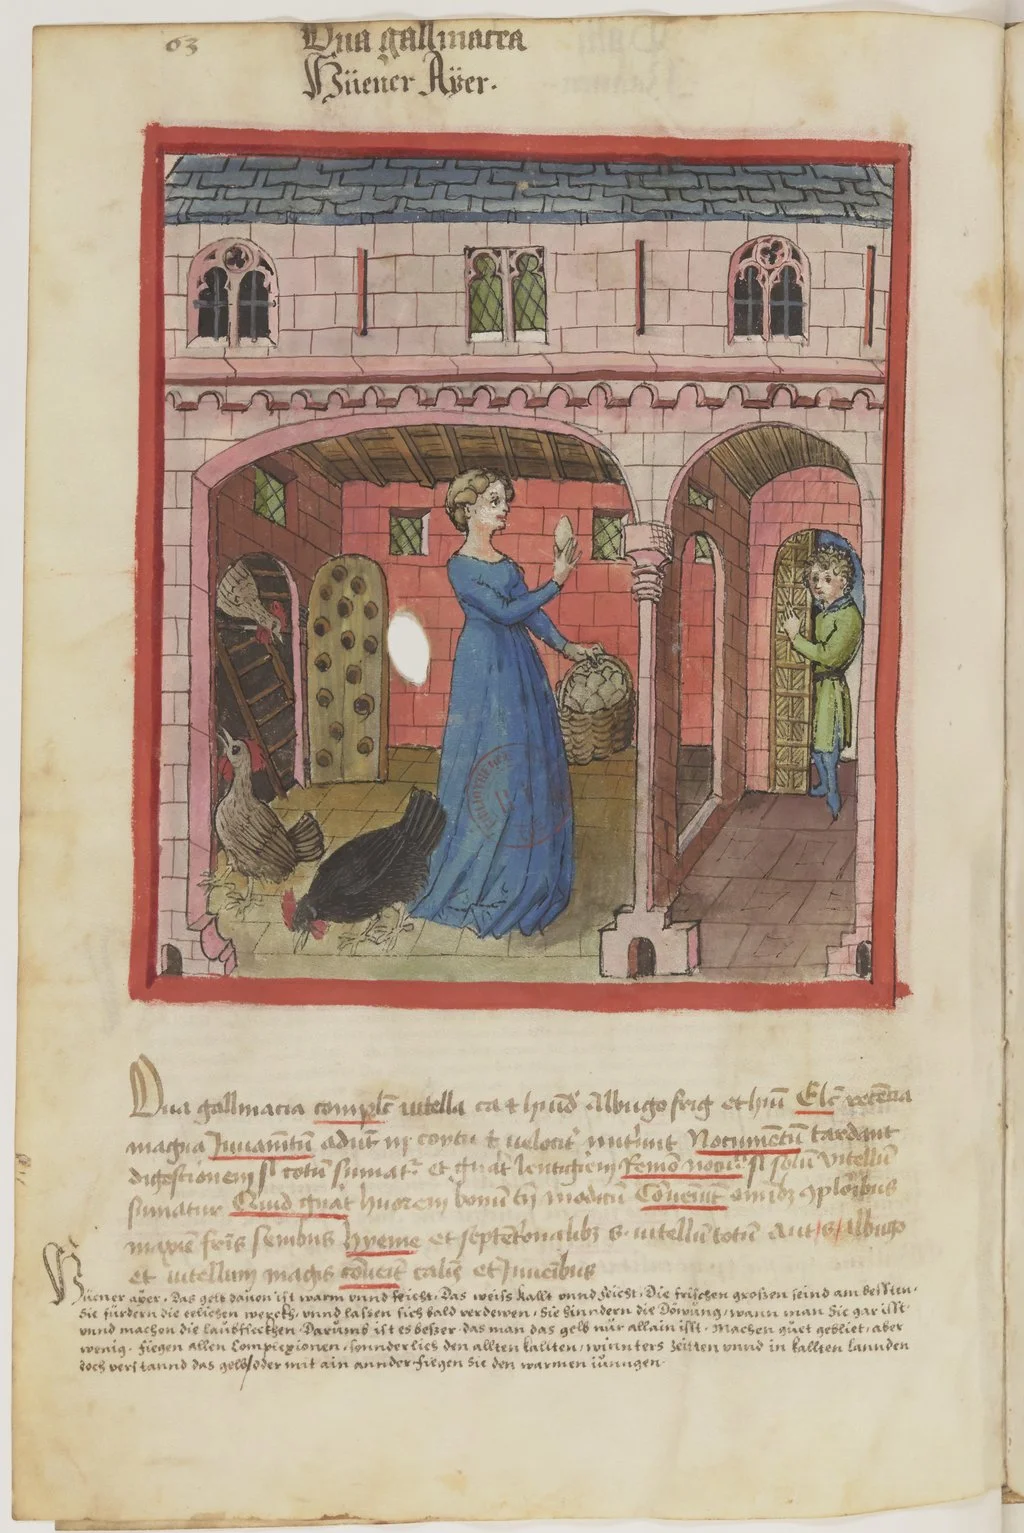 63
Ova gallinacea
Hüener Aÿer.
Ova gallinacia complē vitella ca & hūd Albugo frig et hūī Elc̄ recētia
magna Juvamētū aduīt īn coytu & velocit nutriunt Nocumētū tardant
digestionem sī cotū sumat et gnāt lentiginem Remō nocu sī solū vitellū
sumatur Quid gnāt huorem bonū modicū Cōueniūt omībz 9plōibus
magis frīs senibus hyeme et septētrionalibz s. vitellū totū Aut /s/ Albugo
et vitellum magis cōueīt calīs et Juuenibus
Hüener aÿer. Das gelb dauon ist warm vnnd feicht. Das weiss kallt vnnd feicht. Die frischen grossen seind am bessten.
Sie fürdern die eelichen werckh, vnnd lassen sich bald verdewen. Sie hinndern die Döwung, wann man Sie gar isst
vnnd machen die laubfleckhen. Darumb ist es besser das man das gelb nur allain isst. Machen guet geblüet, aber
wenig. fiegen allen Complexionen, sonnderlich den allten kallten, winnters Zeitten vnnd in kallten lannden
doch verstannd das gelb / oder mit ain annder fiegen Sie den warmen iungen.